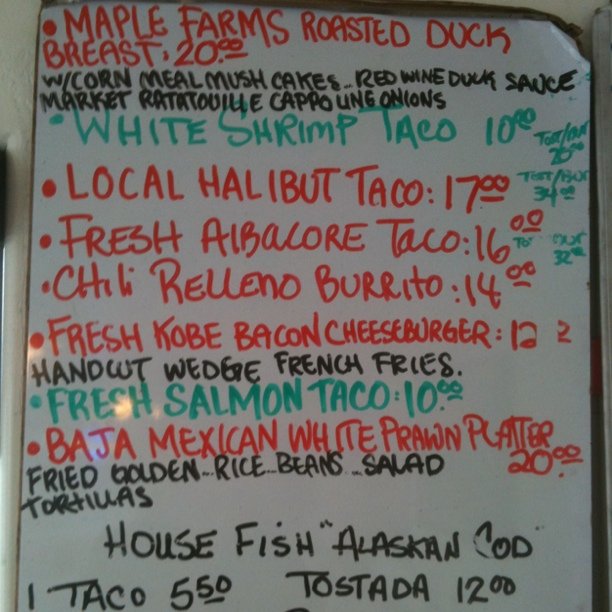 • MAPLE FARMS ROASTED DUCK
BREAST: 20.00
W/CORN MEAL MUSH CAKES... RED WINE DUCK SAUCE
MARKET RATATOUILLE CAPPOLINE ONIONS
• WHITE SHRIMP TACO 10.00
TOST/BUR
20.00
• LOCAL HALIBUT TACO: 17.00
TOST/BUR
34.00
• FRESH AlBACORE TACO: 16.00
32.00
• CHili RELLENO BURRITO: 14.00
• FRESH KOBE BACON CHEESEBURGER: 12
HANDCUT WEDGE FRENCH FRIES.
• FRESH SALMON TACO: 10.00
• BAJA MEXICAN WHITE PRAWN PLATTER
20.00
FRIED GOLDEN... RICE.. BEANS... SALAD
TORTILLAS
HOUSE FISH "ALASKAN COD
1 TACO 5.50 TOSTADA 12.00